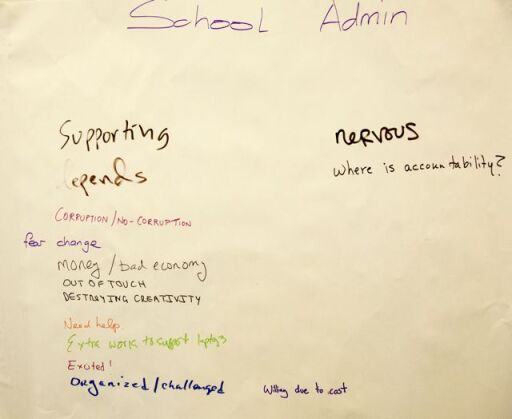 School Admin
Supporting
nervous
Depends
where is accountability?
CORRUPTION/NO-CORRUPTION
fear change
money/bad economy
OUT OF TOUCH
DESTROYING CREATIVITY
Need help.
Extra work to support
Excited!
Organized/challenged
Willing due to cost